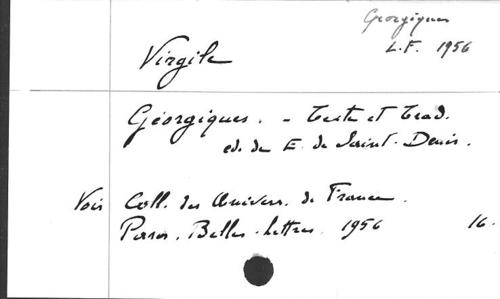 Georgiques
L.F. 1956
Virgile
Géorgiques. - Texte et Trad.
ed. de E. de Saint-Denis.
Voir Coll. des Univers. de France.
Paris. Belles-Lettres. 1956 16.